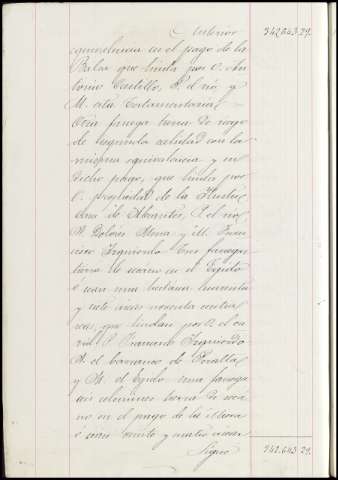 Anterior 342.643.29.
equivalencia en el pago de la
Balsa que linda por O. An
tonio Castillo, P. el río, y
M. esta Testamentaria.
Otra fanega tierra de riego
de segunda calidad con la
misma equivalencia y en
dicho pago, que linda por
O. propiedad de la
de Abrantes, P. el río,
N. Dolores Mena y M. Fran
cisco Izquierdo. Tres fanegas
tierra de secano en el Egido
o sean una hectárea noventa
y siete áreas noventa centiá
reas, que lindan por O. el
P. Francisco Izquierdo
N. el barranco de Peralta
y M. el Egido. una fanega
tierra de seca
no en el pago de la
o sean sesenta y cuatro áreas
Sigue 342.643.29.